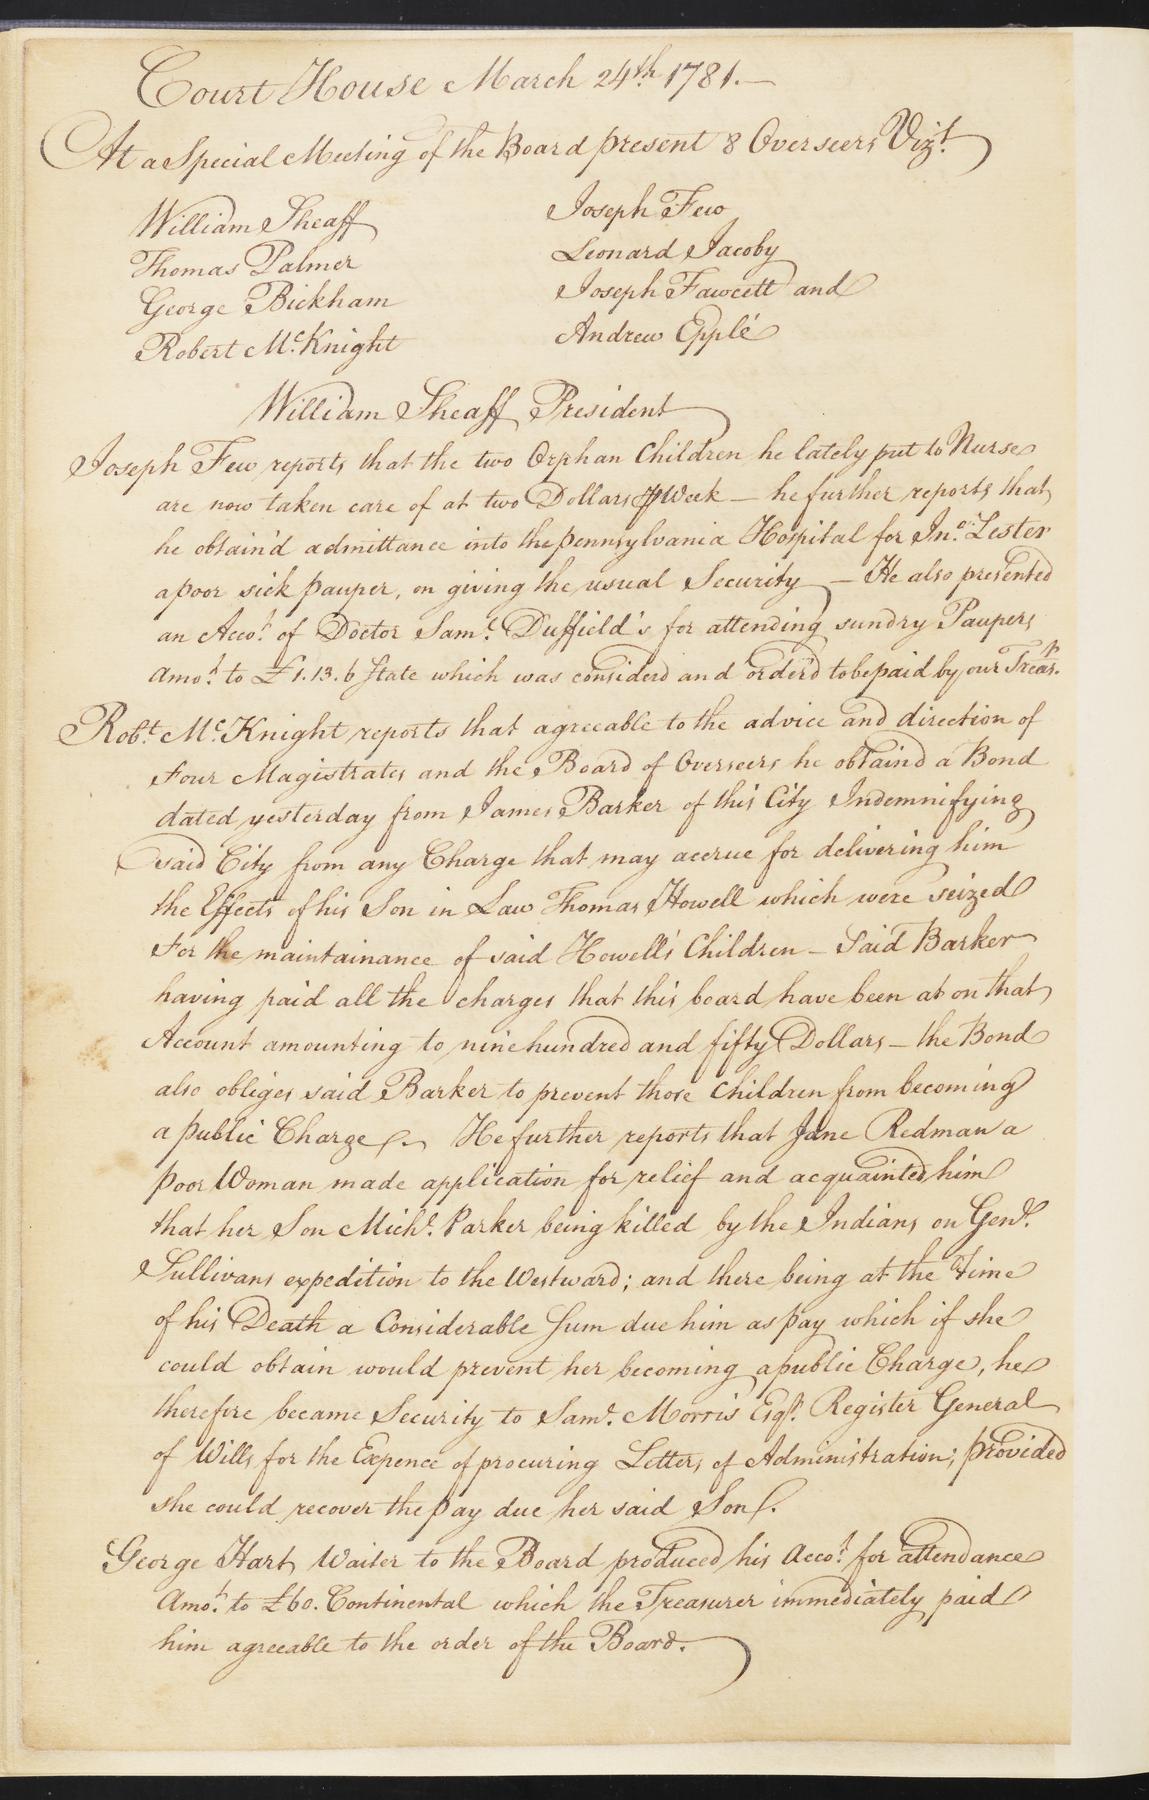 Court House March 24th 1781.—
At a Special Meeting of the Board present 8 Overseers Vizt.
William Sheaff
Thomas Palmer
George Bickham
Robert Mc.Knight
Joseph Few
Leonard Jacoby
Joseph Fawcett and
Andrew Epplé
William Sheaff President
Joseph Few reports that the two Orphan Children he lately put to Nurse
are now taken care of at two Dollars ⅌ Week — he further reports that
he obtain'd admittance into the pennsylvania Hospital for Jno. Lester
a poor sick pauper, on giving the usual Security — He also presented
an Accot. of Doctor Saml. Duffield's for attending sundry Paupers
Amot. to £1.13.6 State which was considerd and order'd to be paid by our Trear.
Robt. Mc.Knight reports that agreeable to the advice and direction of
Four Magistrates and the Board of Overseers he obtaind a Bond
dated yesterday from James Barker of this City Indemnifying
said City from any Charge that may accrue for delivering him
the Effects of his Son in Law Thomas Howell which were seized
For the maintainance of said Howell's Children — Said Barker
having paid all the charges that this board have been at on that
Account amounting to nine hundred and fifty Dollars — the Bond
also obliges said Barker to prevent those Children from becoming
a public Charge. He further reports that Jane Redman a
poor Woman made application for relief and acquainted him
that her Son Michl. Parker being killed by the Indians on Genl.
Sullivans expedition to the Westward; and there being at the Time
of his Death a Considerable Sum due him as pay which if she
could obtain would prevent her becoming a public Charge, he
therefire became Security to Saml. Morris Esqr. Register General
of Wills for the Expence of procuring Letters of Administration; provided
she could recover the pay due her said Son.
George Hart Waiter to the Board produced his Accot. for attendance
Amot. to £60. Continental which the Treasurer immediately paid
him agreeable to the order of the Board.